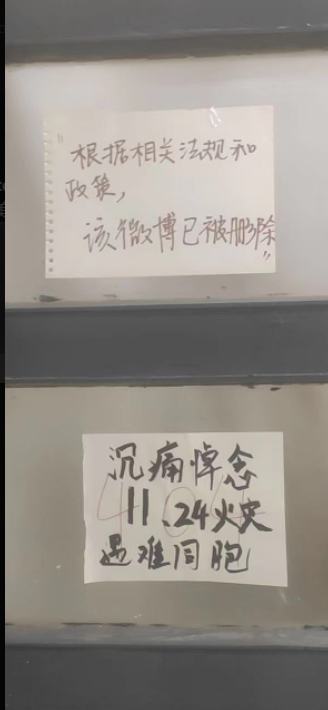 "根据相关法规和
政策，
该微博已被删除"
沉痛悼念
11.24火灾
遇难同胞